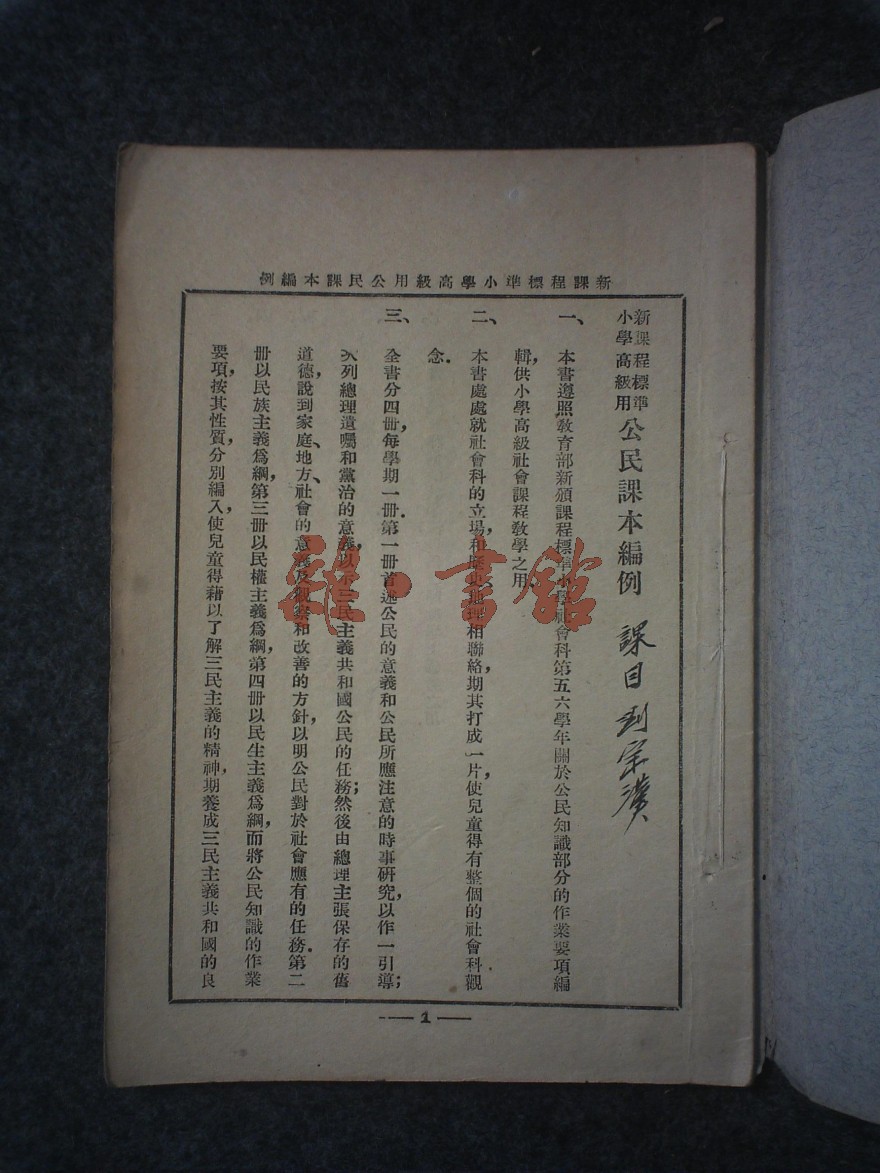 新課程標準小學高級用公民課本編例
新課程標準
小學高級用
公民課本編例
課目
一、本書遵照教育部新頒課程標準小學社會科第五六學年關於公民知識部分的作業要項編
輯，供小學高級社會課程教學之用．
二、本書處處就社會科的立場，和歷史、地理相聯絡，期其打成一片，使兒童得有整個的社會科觀
念．
三、全書分四冊，每學期一冊．第一冊首述公民的意義和公民所應注意的時事研究，以作一引導；
次列總理遺囑和黨治的意義，以示三民主義共和國公民的任務；然後由總理主張保存的舊
道德，說到家庭、地方、社會的意義及觀察和改善的方針，以明公民對於社會應有的任務．第二
冊以民族主義爲綱，第三冊以民權主義爲綱，第四冊以民生主義爲綱，而將公民知識的作業
要項，按其性質，分別編入，使兒童得藉以了解三民主義的精神，期養成三民主義共和國的良
1
書館